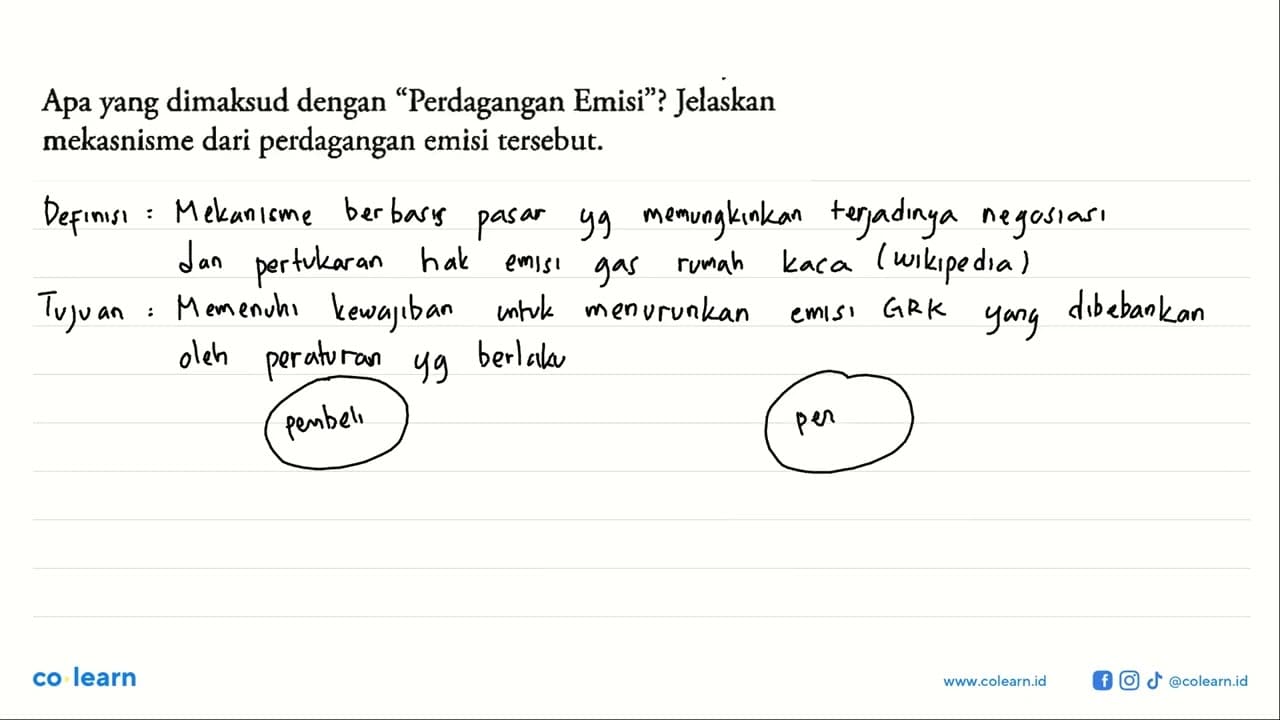 Apa yang dimaksud dengan “Perdagangan Emisi”? Jelaskan
mekasnisme dari perdagangan emisi tersebut.
Definisi : Mekanisme berbasis pasar yg memungkinkan terjadinya negosiasi
dan pertukaran hak emisi gas rumah kaca (wikipedia)
Tujuan : Memenuhi kewajiban untuk menurunkan emisi GRK yang dibebankan
oleh peraturan yg berlaku
pembeli
pen
co learn
www.colearn.id
@colearn.id